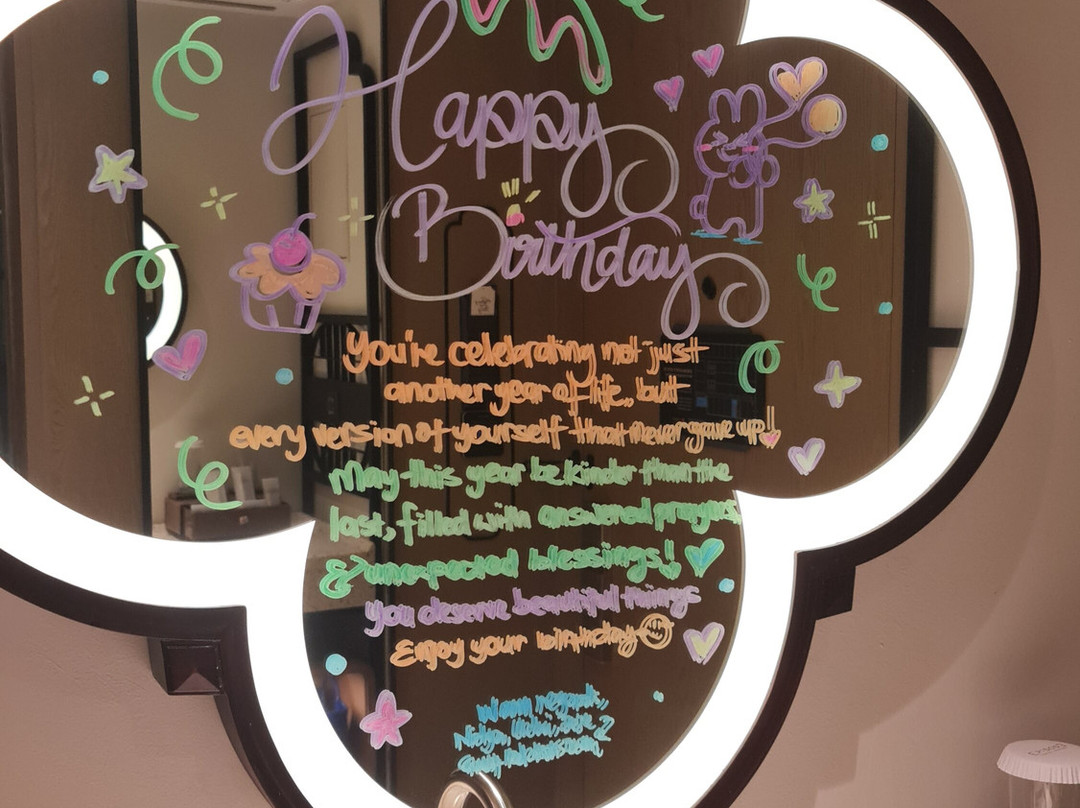 Happy
Birthday
You're celebrating not just
another year of life, but
every version of yourself that never gave up!
May this year be kinder than the
last, filled with answered prayers
& unexpected blessings!
You deserve beautiful things
Enjoy your birthday
Warm regards,